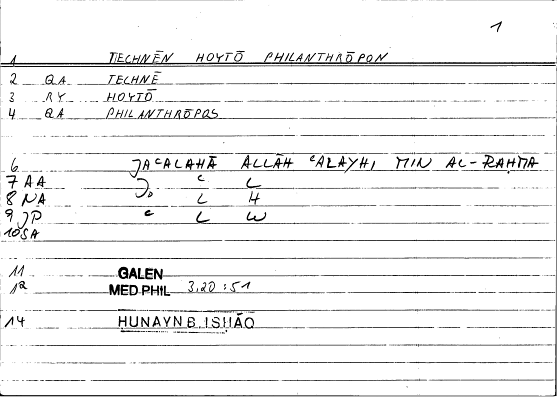 1
1 TECHNĒN HOYTŌ PHILANTHRŌPON
2 QA TECHNĒ
3 RY HOYTŌ
4 QA PHILANTHRŌPOS
6 JAᶜALAHĀ ALLĀH ᶜALAYHI MIN AL-RAḤMA
7 AA J ᶜ L
8 NA J. L H
9 JP ᶜ L W
10 SA
11 GALEN
12 MED PHIL 3,20 : 51
14 ḤUNAYN B. ISḤĀQ